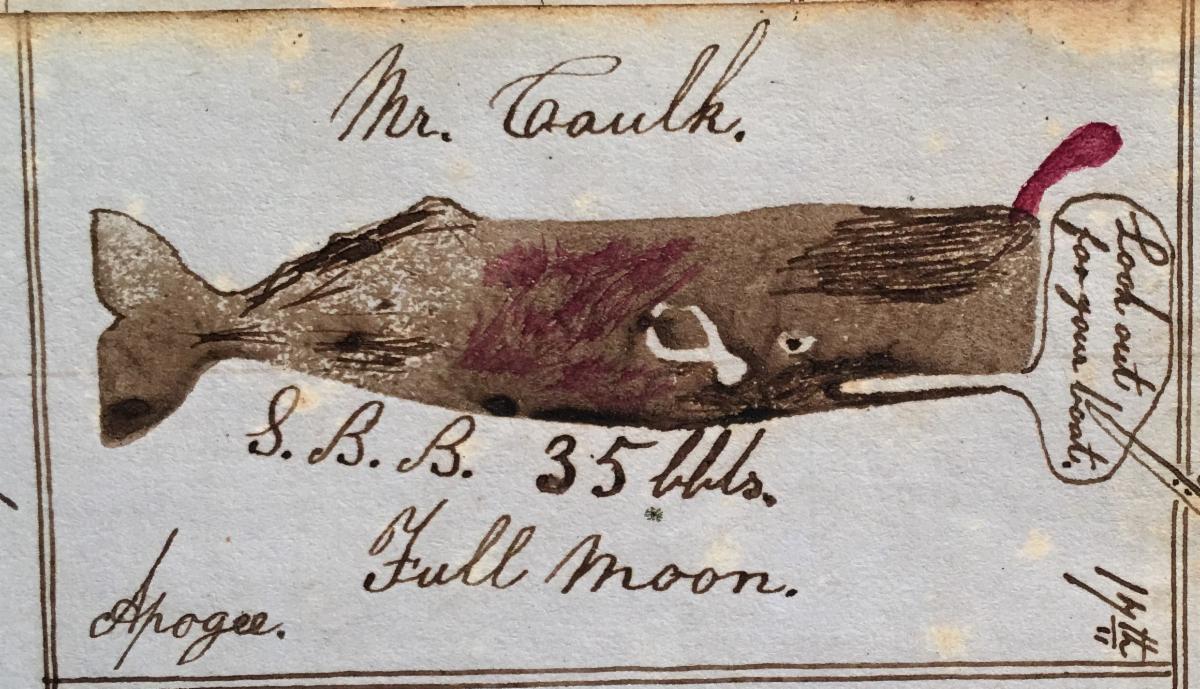 Mr. Caulk.
Look out
for your boat.
S. B. B. 35 bbls.
Full Moon.
Apogee.
17th